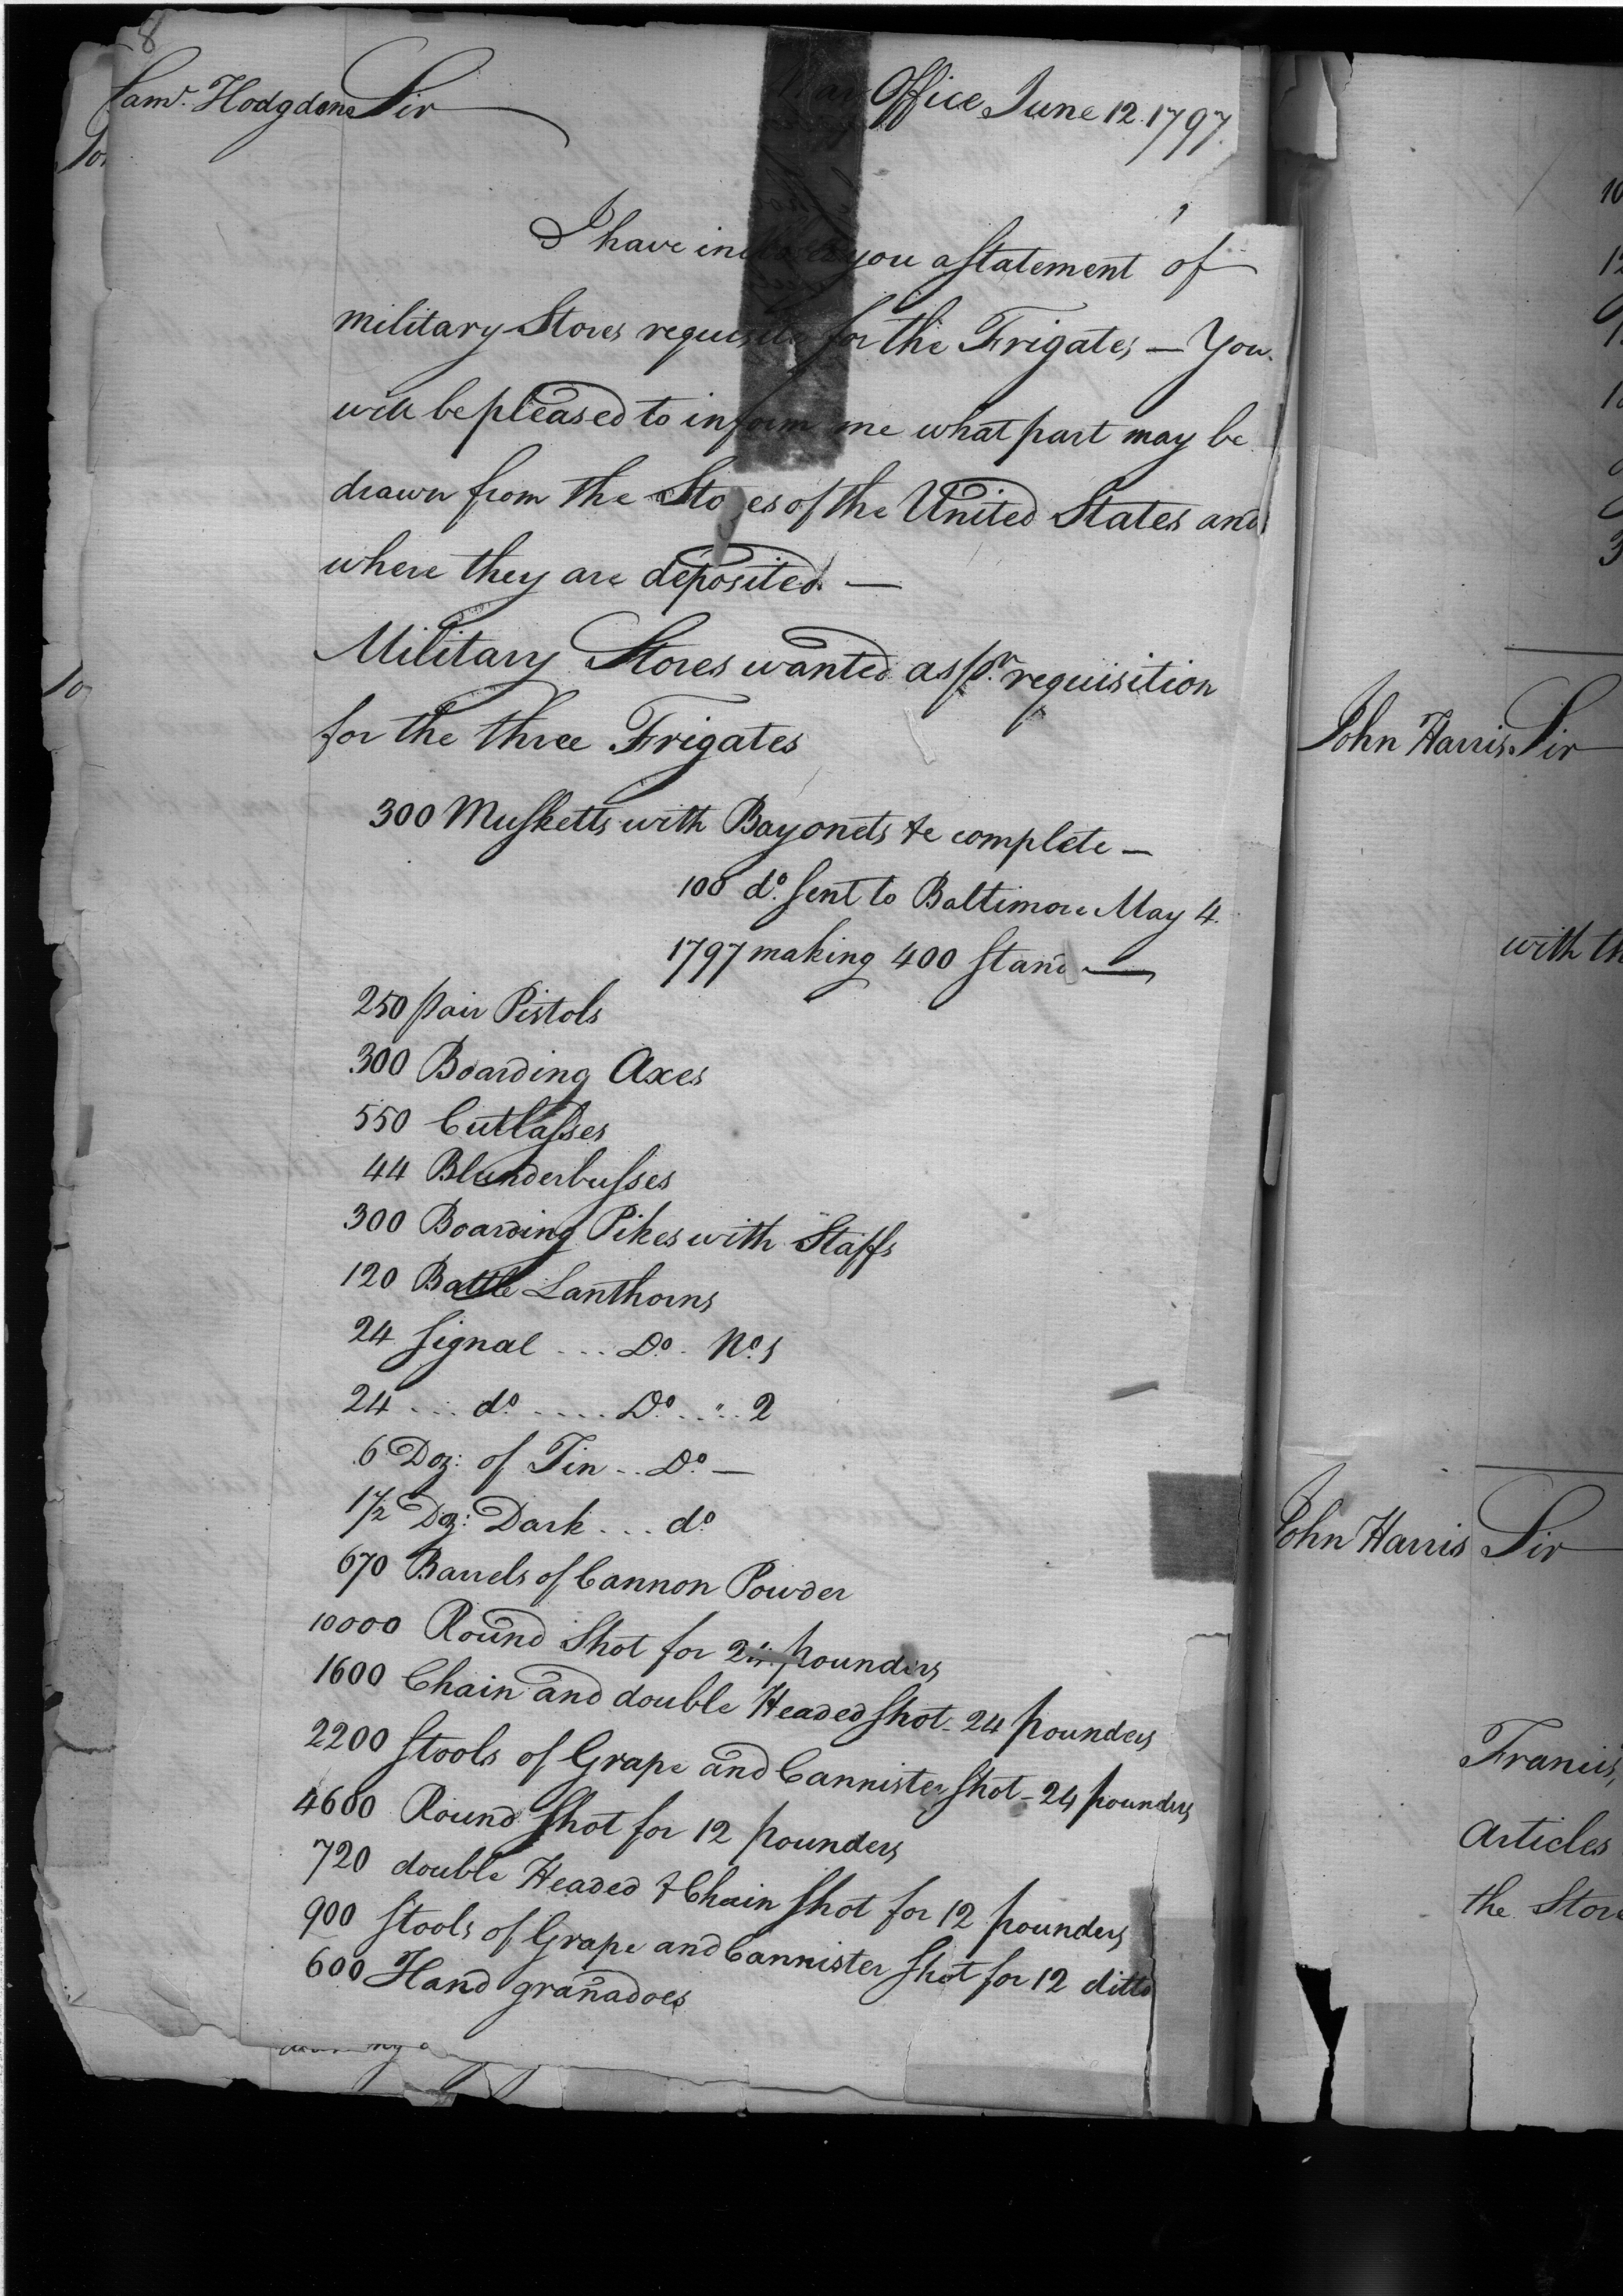 8
Saml. Hodgdone Sir War Office June 12. 1797.
I have inclosed you a statement of
military Stores requisite for the Frigates — You
will be pleased to inform me what part may be
drawn from the Stores of the United States and
where they are deposited. —
Military Stores wanted as pr. requisition
for the three Frigates
300 Musketts with Bayonets &c complete —
100 do. sent to Baltimore May 4.
1797 making 400 Stand —
250 pair Pistols
300 Boarding Axes
550 Cutlasses
44 Blunderbusses
300 Boarding Pikes with Staffs
120 Battle Lanthorns
24 Signal ... Do. No. 1
24 ... do. .... Do. .". 2
6 Doz: of Tin .. Do. —
1 1/2 Doz: Dark ... do.
670 Barrels of Cannon Powder
10000 Round Shot for 24 pounders
1600 Chain and double Headed Shot - 24 pounders
2200 Stools of Grape and Cannister Shot - 24 pounders
4600 Round Shot for 12 pounders
720 double Headed & Chain Shot for 12 pounders
900 Stools of Grape and Cannister Shot for 12 ditto
600 Hand granadoes
John Harris. Sir
with th
John Harris Sir
Francis
Articles
the Store